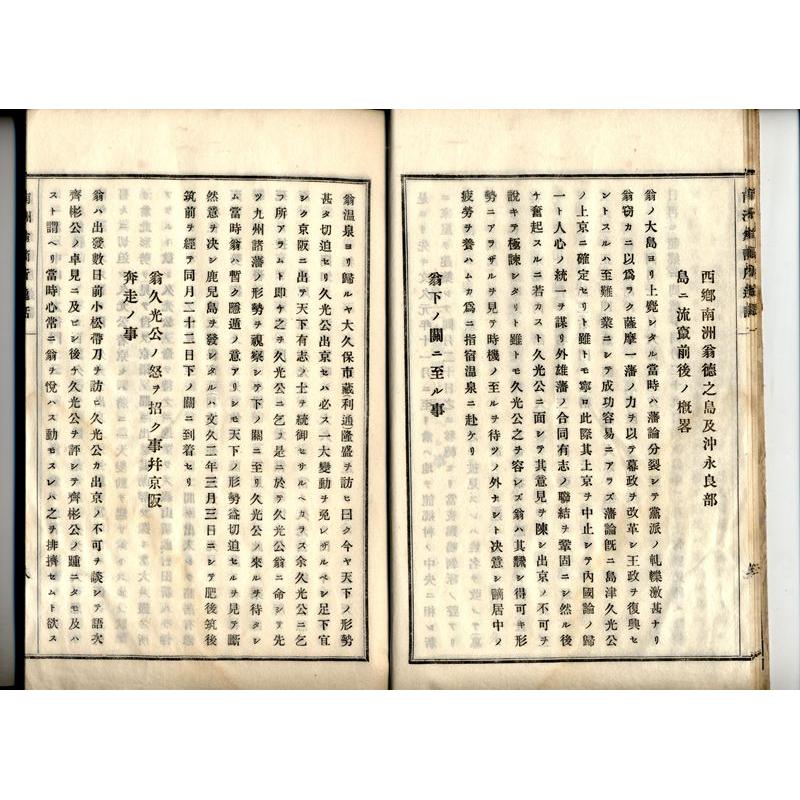 西鄕南洲翁德之島及沖永良部
島ニ流竄前後ノ槪畧
翁ノ大島ヨリ上覺シタル當時ハ藩論分裂シテ黨派ノ軋轢激甚ナリ
翁窃カニ以爲ラク薩摩一藩ノ力ヲ以テ幕政ヲ改革シ王政ヲ復興セ
ントスルハ至難ノ業ニシテ成功容易ニアラズ藩論旣ニ島津久光公
ノ上京ニ確定セリト雖トモ寧ロ此際其上京ヲ中止シテ內國論ノ歸
一ト人心ノ統一ヲ謀リ外雄藩ノ合同有志ノ聯結ヲ鞏固ニシ然ル後
ケ奮起スルニ若カスト久光公ニ面シテ其意見ヲ陳シ出京ノ不可ヲ
說キテ極諫シタリト雖トモ久光公之ヲ容レズ翁ハ其驥シ得可キ形
勢ニアラザルヲ見テ時機ノ至ルヲ待ツノ外ナシト決意シ謫居中ノ
疲勞ヲ養ハンガ爲〆ニ指宿溫泉ニ赴ケリ
翁下ノ關ニ至ル事
翁溫泉ヨリ歸ルヤ大久保市藏利通隆盛ヲ訪ヒ曰ク今ヤ天下ノ形勢
甚タ切迫セリ久光公出京セハ必ス一大變動ヲ免レザルベシ足下宜
シク京阪ニ出テ天下有志ノ士ヲ統御セサルベカラス余久光公ニ乞
フ所アラムト即チ之ヲ久光公ニ乞フ是ニ於テ久光公翁ニ命シテ先
ツ九州諸藩ノ形勢ヲ視察シテ下ノ關ニ至リ久光公ノ來ルヲ待タシ
ム當時翁ハ暫ク隱遁ノ意アリシモ天下ノ形勢益切迫セルヲ見テ斷
然意ヲ決シ鹿兒島ヲ發シタルハ文久二年三月三日ニシテ肥後筑後
筑前ヲ經テ同月二十二日下ノ關ニ到着セリ
翁久光公ノ怒ヲ招ク事幷京阪
奔走ノ事
翁ハ出發數日前小松帶刀ヲ訪ヒ久光公カ出京ノ不可ヲ談シテ語次
齊彬公ノ卓見ニ及ビシ後チ久光公ヲ評シテ齊彬公ノ踵ニタモ及ハ
スト謂ヘリ當時心常ニ翁ヲ悅ハス動モスレハ之ヲ排擠セムト欲ス